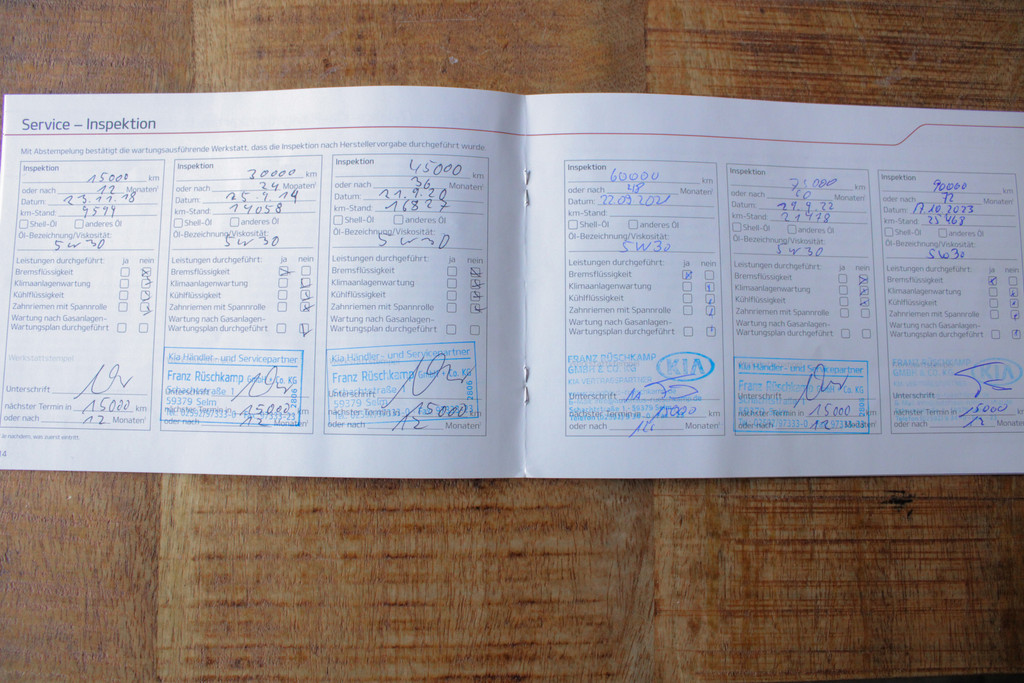 Service – Inspektion
Mit Abstempelung bestätigt die wartungsausführende Werkstatt, dass die Inspektion nach Herstellervorgabe durchgeführt wurde
Inspektion
15000 km
oder nach 12 Monaten¹
Datum: 23.11.18
km-Stand: 4599
Shell-Öl anderes Öl
Öl-Bezeichnung/Viskosität:
5W30
Leistungen durchgeführt: ja nein
Bremsflüssigkeit
Klimaanlagenwartung
Kühlflüssigkeit
Zahnriemen mit Spannrolle
Wartung nach Gasanlagen-
Wartungsplan durchgeführt
Werkstattstempel
Unterschrift
nächster Termin in 15000 km
oder nach 12 Monaten¹
Inspektion
30000 km
oder nach 24 Monaten¹
Datum:
km-Stand: 14058
Shell-Öl anderes Öl
Öl-Bezeichnung/Viskosität:
5W30
Leistungen durchgeführt: ja nein
Bremsflüssigkeit
Klimaanlagenwartung
Kühlflüssigkeit
Zahnriemen mit Spannrolle
Wartung nach Gasanlagen-
Wartungsplan durchgeführt
Kia Händler - und Servicepartner
Franz Rüschkamp GmbH & Co. KG
59379 Selm
Unterschrift
nächster Termin in 15000 km
oder nach 12 Monaten¹
Inspektion
45000 km
oder nach 36 Monaten¹
Datum: 21.9.20
km-Stand: 16827
Shell-Öl anderes Öl
Öl-Bezeichnung/Viskosität:
5W30
Leistungen durchgeführt: ja nein
Bremsflüssigkeit
Klimaanlagenwartung
Kühlflüssigkeit
Zahnriemen mit Spannrolle
Wartung nach Gasanlagen-
Wartungsplan durchgeführt
Kia Händler - und Servicepartner
Franz Rüschkamp GmbH & Co. KG
59379 Selm
Unterschrift
nächster Termin in 15000 km
oder nach 12 Monaten¹
Je nachdem, was zuerst eintritt.
14
Inspektion
60000 km
oder nach 48 Monaten¹
Datum: 22.09.2021
km-Stand:
Shell-Öl anderes Öl
Öl-Bezeichnung/Viskosität:
5W30
Leistungen durchgeführt: ja nein
Bremsflüssigkeit
Klimaanlagenwartung
Kühlflüssigkeit
Zahnriemen mit Spannrolle
Wartung nach Gasanlagen-
Wartungsplan durchgeführt
FRANZ RÜSCHKAMP
GMBH & CO. KG
KIA VERTRAGSPARTNER
KIA
Unterschrift
nächster Termin in 15000 km
oder nach Monaten¹
Inspektion
75000 km
oder nach 60 Monaten¹
Datum: 21.9.22
km-Stand: 21478
Shell-Öl anderes Öl
Öl-Bezeichnung/Viskosität:
5W30
Leistungen durchgeführt: ja nein
Bremsflüssigkeit
Klimaanlagenwartung
Kühlflüssigkeit
Zahnriemen mit Spannrolle
Wartung nach Gasanlagen-
Wartungsplan durchgeführt
Kia Händler - und Servicepartner
Franz Rüschkamp GmbH & Co. KG
Unterschrift
nächster Termin in 15000 km
oder nach 12 Monaten¹
Inspektion
90000 km
oder nach 72 Monaten¹
Datum: 17.10.2023
km-Stand: 25468
Shell-Öl anderes Öl
Öl-Bezeichnung/Viskosität:
5W30
Leistungen durchgeführt: ja nein
Bremsflüssigkeit
Klimaanlagenwartung
Kühlflüssigkeit
Zahnriemen mit Spannrolle
Wartung nach Gasanlagen-
Wartungsplan durchgeführt
FRANZ RÜSCHKAMP
GMBH & CO. KG
KIA
Unterschrift
nächster Termin in 15000 km
oder nach 12 Monaten¹